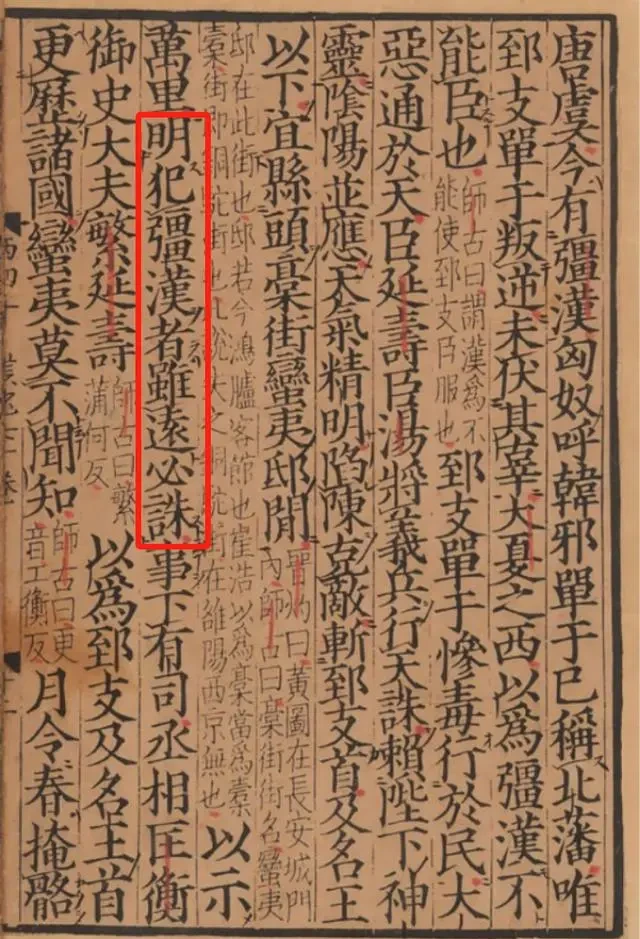 唐虞今有彊漢匈奴呼韓邪單于已稱北藩唯
郅支單于叛逆未伏其辜大夏之西以爲彊漢不
能臣也師古曰謂漢爲不能使郅支臣服也郅支單于慘毒行於民大
惡通於天臣延壽臣湯將義兵行天誅賴陛下神
靈陰陽並應天氣精明陷陳克敵斬郅支首及名王
以下宜縣頭槀街蠻夷邸閒晉灼曰黃圖在長安城門內師古曰槀街街名蠻夷
邸在此街也邸若今鴻臚客節也崔浩以爲槀當爲橐橐街即銅駝街也此說失之銅駝街在雒陽西京無也以示
萬里明犯彊漢者雖遠必誅事下有司丞相匡衡
御史大夫繁延壽師古曰繁蒲何反以爲郅支及名王首
更歷諸國蠻夷莫不聞知師古曰更音工衡反月令春掩骼